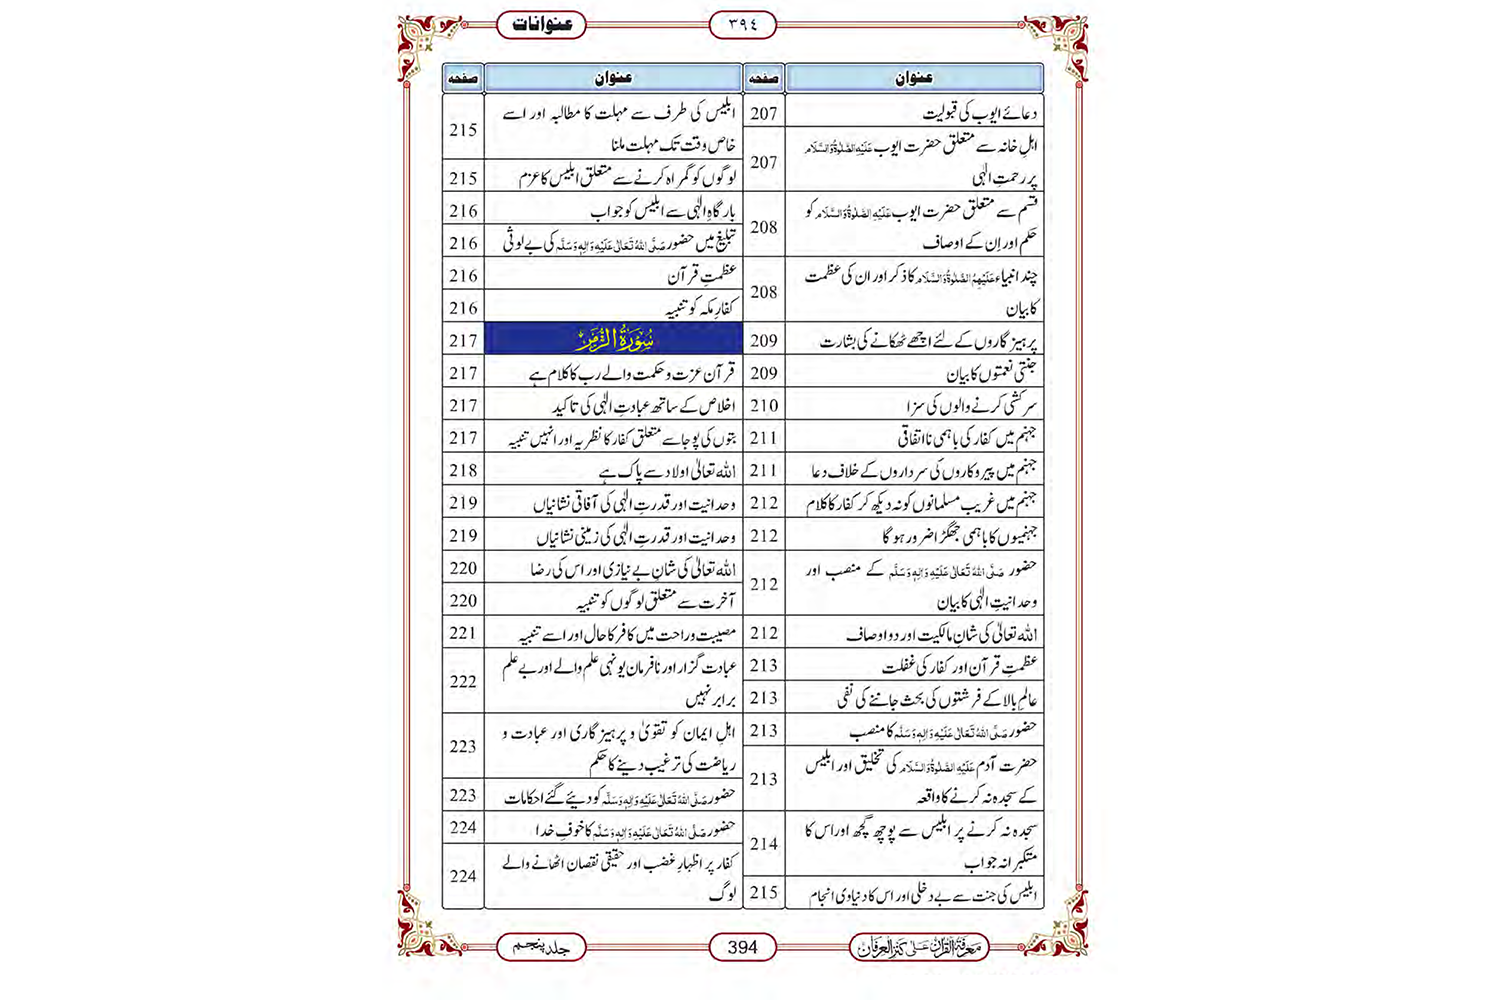 عنوانات
٣٩٤
عنوان صفحہ
دعائے ایوب کی قبولیت 207
اہلِ خانہ سے متعلق حضرت ایوب عَلَیْہِ الصَّلٰوۃُ وَالسَّلَام
پر رحمتِ الٰہی 207
قسم سے متعلق حضرت ایوب عَلَیْہِ الصَّلٰوۃُ وَالسَّلَام کو
حکم اور اِن کے اوصاف 208
چند انبیاء عَلَیْہِمُ الصَّلٰوۃُ وَالسَّلَام کا ذکر اور ان کی عظمت
کا بیان 208
پرہیز گاروں کے لئے اچھے ٹھکانے کی بشارت 209
جنتی نعمتوں کا بیان 209
سرکشی کرنے والوں کی سزا 210
جہنم میں کفار کی باہمی نااتفاقی 211
جہنم میں پیروکاروں کی سرداروں کے خلاف دعا 211
جہنم میں غریب مسلمانوں کو نہ دیکھ کر کفار کا کلام 212
جہنمیوں کا باہمی جھگڑا ضرور ہوگا 212
حضور صَلَّی اللہُ تَعَالٰی عَلَیْہِ وَاٰلِہٖ وَسَلَّم کے منصب اور
وحدانیتِ الٰہی کا بیان 212
اللہ تعالیٰ کی شانِ مالکیت اور دو اوصاف 212
عظمتِ قرآن اور کفار کی غفلت 213
عالمِ بالا کے فرشتوں کی بحث جاننے کی نفی 213
حضور صَلَّی اللہُ تَعَالٰی عَلَیْہِ وَاٰلِہٖ وَسَلَّم کا منصب 213
حضرت آدم عَلَیْہِ الصَّلٰوۃُ وَالسَّلَام کی تخلیق اور ابلیس
کے سجدہ نہ کرنے کا واقعہ 213
سجدہ نہ کرنے پر ابلیس سے پوچھ گچھ اور اس کا
متکبرانہ جواب 214
ابلیس کی جنت سے بے دخلی اور اس کا دنیاوی انجام 215
عنوان صفحہ
ابلیس کی طرف سے مہلت کا مطالبہ اور اسے
خاص وقت تک مہلت ملنا 215
لوگوں کو گمراہ کرنے سے متعلق ابلیس کا عزم 215
بارگاہِ الٰہی سے ابلیس کو جواب 216
تبلیغ میں حضور صَلَّی اللہُ تَعَالٰی عَلَیْہِ وَاٰلِہٖ وَسَلَّم کی بے لوثی 216
عظمتِ قرآن 216
کفارِ مکہ کو تنبیہ 216
سُوْرَۃُ الزُّمَر 217
قرآن عزت و حکمت والے رب کا کلام ہے 217
اخلاص کے ساتھ عبادتِ الٰہی کی تاکید 217
بتوں کی پوجا سے متعلق کفار کا نظریہ اور انہیں تنبیہ 217
اللہ تعالیٰ اولاد سے پاک ہے 218
وحدانیت اور قدرتِ الٰہی کی آفاقی نشانیاں 219
وحدانیت اور قدرتِ الٰہی کی زمینی نشانیاں 219
اللہ تعالیٰ کی شانِ بے نیازی اور اس کی رضا 220
آخرت سے متعلق لوگوں کو تنبیہ 220
مصیبت و راحت میں کافر کا حال اور اسے تنبیہ 221
عبادت گزار اور نافرمان یونہی علم والے اور بے علم
برابر نہیں 222
اہلِ ایمان کو تقویٰ و پرہیز گاری اور عبادت و
ریاضت کی ترغیب دینے کا حکم 223
حضور صَلَّی اللہُ تَعَالٰی عَلَیْہِ وَاٰلِہٖ وَسَلَّم کو دیئے گئے احکامات 223
حضور صَلَّی اللہُ تَعَالٰی عَلَیْہِ وَاٰلِہٖ وَسَلَّم کا خوفِ خدا 224
کفار پر اظہارِ غضب اور حقیقی نقصان اٹھانے والے
لوگ 224
معرفۃ القرآن علی کنز العرفان
394
جلد پنجم